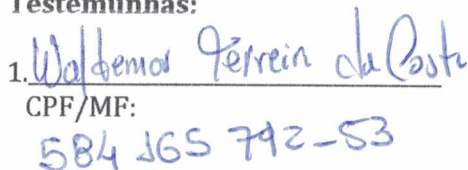 Testemunhas:
1. Waldemar Ferreira da Costa
CPF/MF:
584 165 792-53